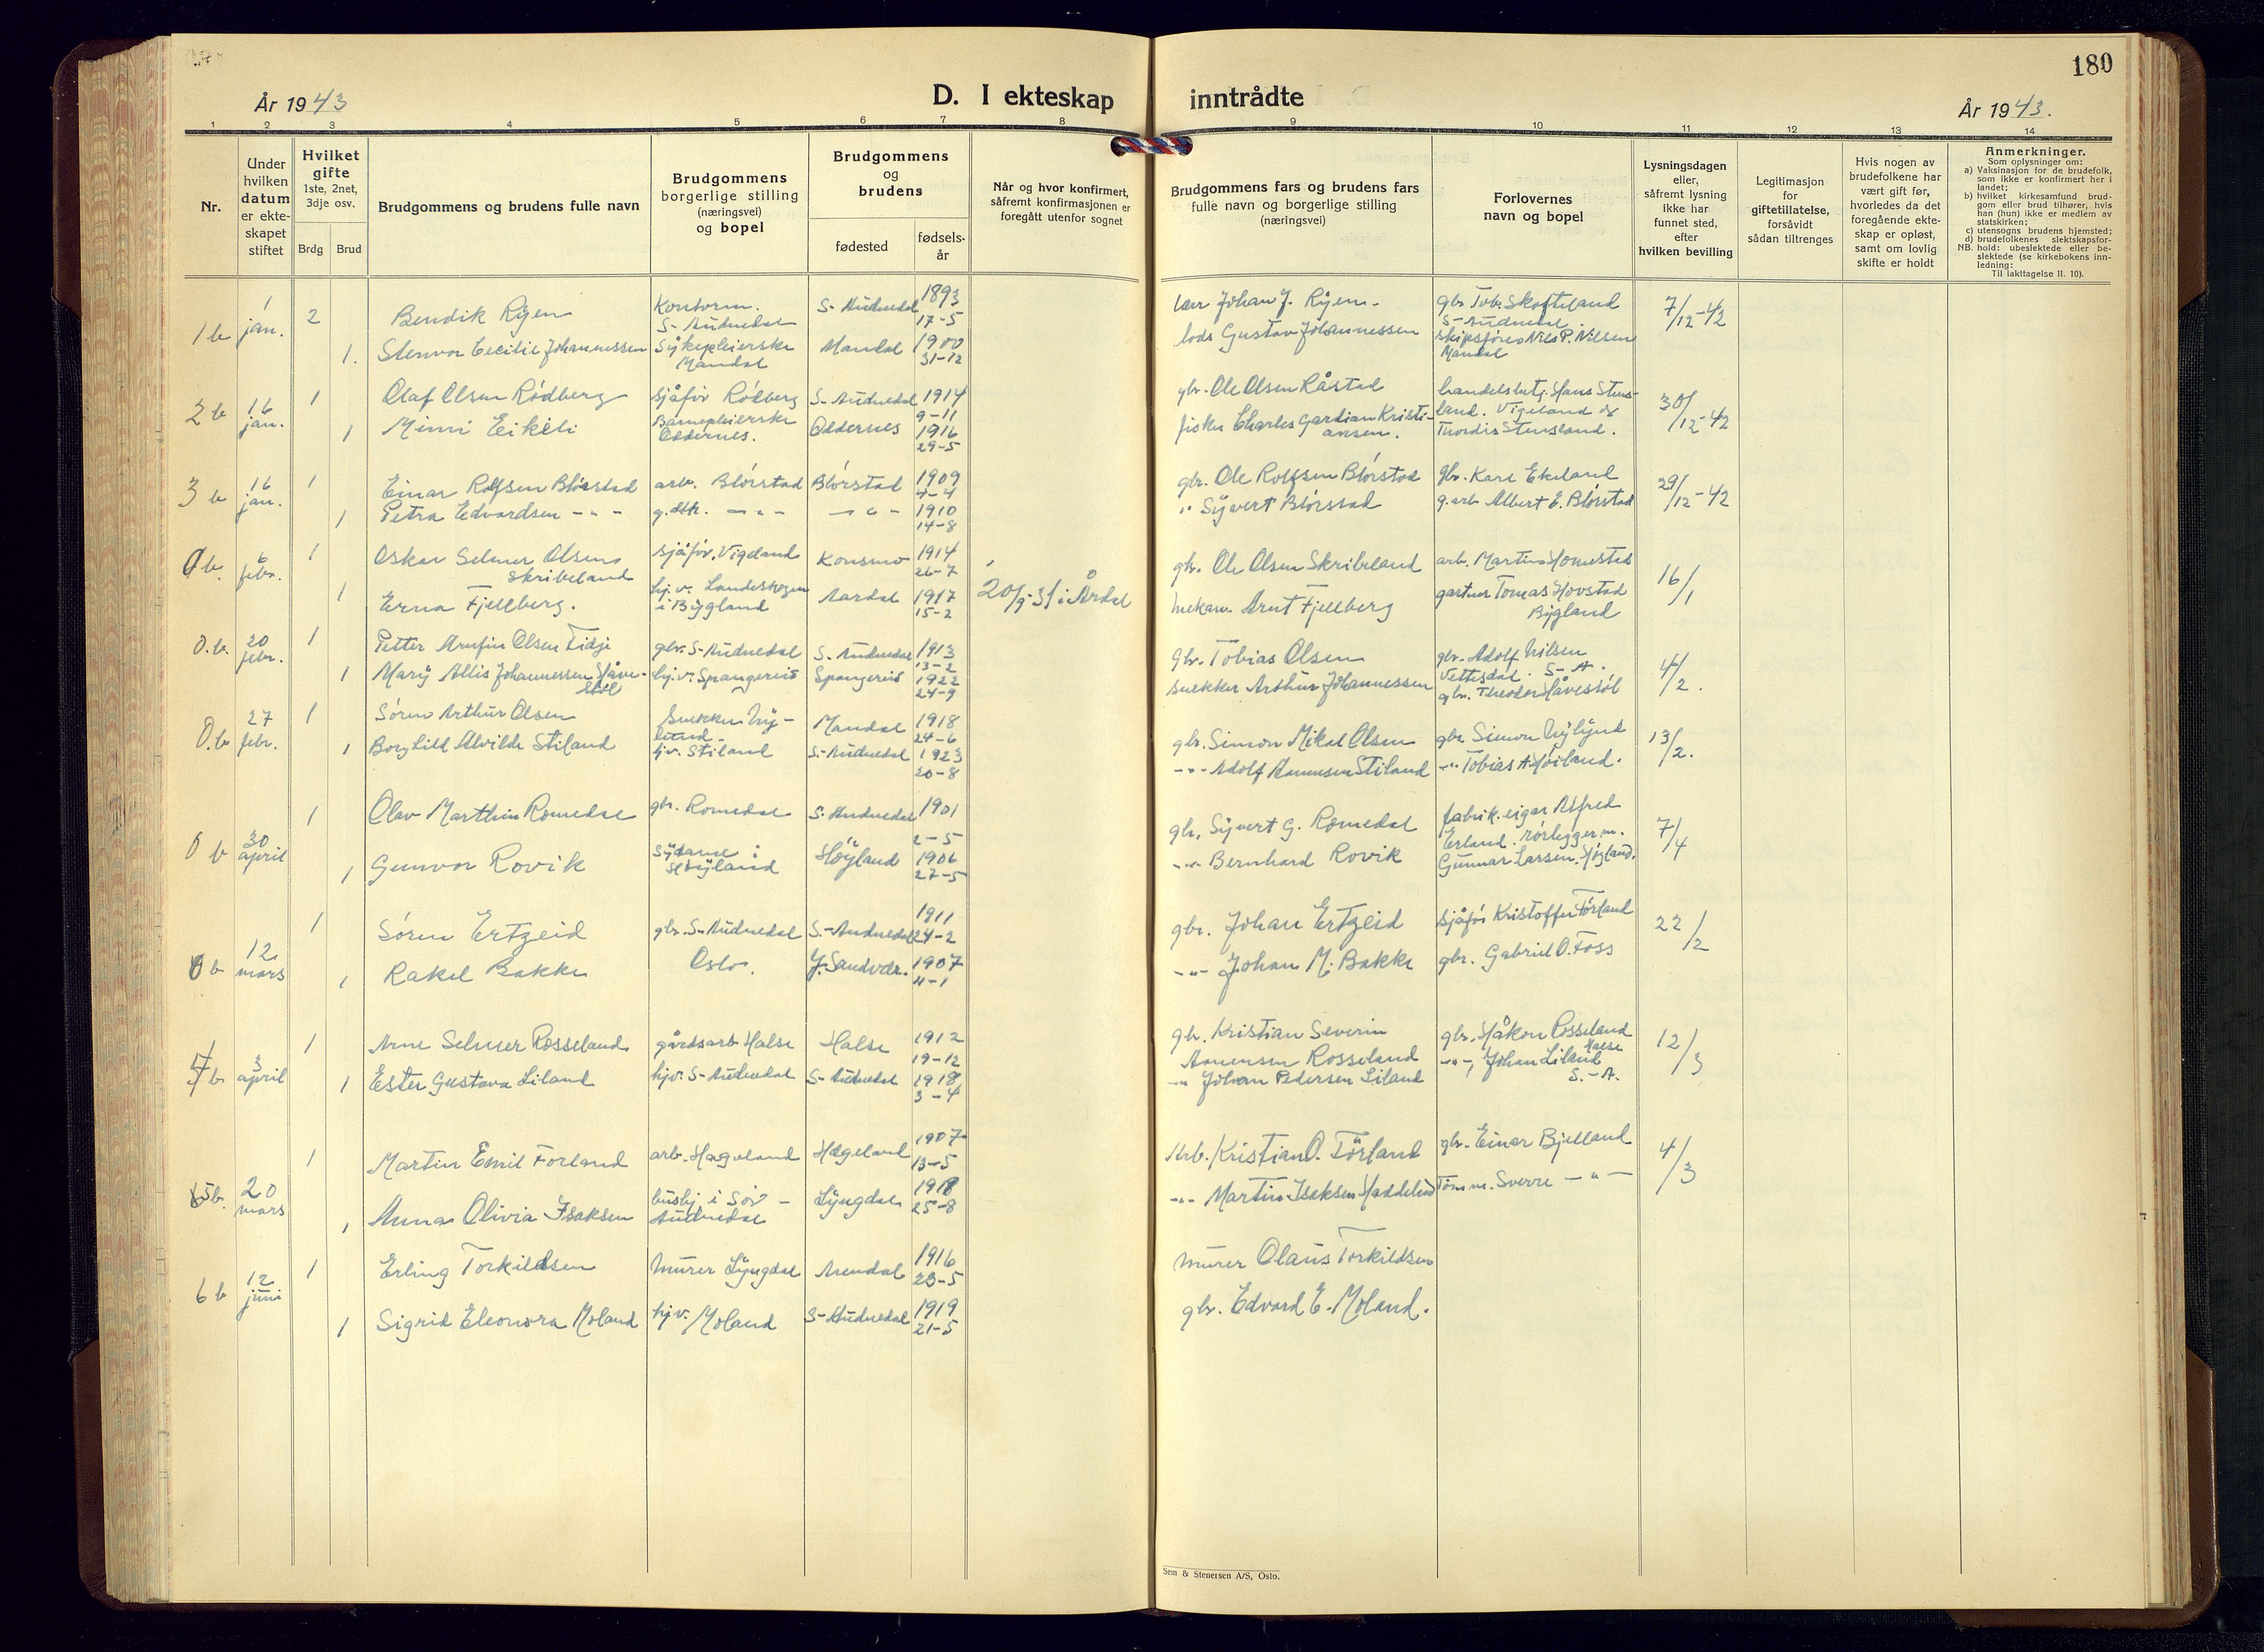 180
År 1943
D. I ekteskap inntrådte
År 1943.
1 2 3 4 5 6 7 8 9 10 11 12 13 14
Nr.
Under hvilken datum er ekteskapet stiftet
Hvilket gifte
1ste, 2net, 3dje osv.
Brdg Brud
Brudgommens og brudens fulle navn
Brudgommens borgerlige stilling (næringsvei) og bopel
Brudgommens og brudens
fødested
fødselsår
Når og hvor konfirmert, såfremt konfirmasjonen er foregått utenfor sognet
Brudgommens fars og brudens fars fulle navn og borgerlige stilling (næringsvei)
Forlovernes navn og bopel
Lysningsdagen eller, såfremt lysning ikke har funnet sted, efter hvilken bevilling
Legitimasjon for giftetillatelse, forsåvidt sådan tiltrenges
Hvis nogen av brudefolkene har vært gift før, hvorledes da det foregående ekteskap er opløst, samt om lovlig skifte er holdt
Anmerkninger.
Som oplysninger om:
a) Vaksinasjon for de brudefolk, som ikke er konfirmert her i landet;
b) hvilket kirkesamfund brudgom eller brud tilhører, hvis han (hun) ikke er medlem av statskirken;
c) utensogns brudens hjemsted;
d) brudefolkenes slektskapsforhold: ubeslektede eller beslektede (se kirkebokens innledning:
NB.
Til iakttagelse II. 10).
1 b 1 jan. 2 Bendik Ryen Kontorm. S-Audnedal S-Audnedal 1893 17-5 Johan J. Ryen. gbr. Tob. Skofteland S-Audnedal 7/12-42
1. Stenvor Cecilie Johannessen Sykepleierske Mandal Mandal 1900 31-12 lods Gustav Johannessen skipsfører Nils P. Nilsen Mandal
2 b 16 jan. 1 Olaf Olsen Rødberg sjåfør Rødberg S-Audnedal 1914 9-11 gbr. Ole Olsen Råstad handelsbetj. Hans Stensland. Vigeland og 30/12-42
1 Minni Eikeli Barnepleierske Oddernes. Oddernes 1916 29-5 fisker Charles Gardian Kristiansen. Thordis Stensland.
3 b 16 jan. 1 Einar Rolfsen Blørstad arb. Blørstad Blørstad 1909 4-4 gbr. Ole Rolfsen Blørstad gbr. Kare Ekeland 29/12-42
1 Petra Edvardsen - " - g.dtr. - " - - " - 1910 14-8 " Syvert Blørstad g.arb. Albert E. Blørstad
0 b. 6 febr. 1 Oskar Selmer Olsen Skribeland sjåfør. Vigeland Konsmo 1914 26-7 gbr. Ole Olsen Skribeland arb. Martin Homestad 16/1
1 Erna Fjellberg. hj.v. Landeskogen i Bygland Aardal 1917 15-2 20/9-31 i Årdal mekan. Arnt Fjellberg gartner Tomas Hovstad Bygland
0. b. 20 febr. 1 Petter Arnfin Olsen Tidje gbr. S-Audnedal S. Audnedal 1913 13-2 Gbr. Tobias Olsen gbr. Adolf Nilsen Vettesdal. S-A. 4/2.
1 Mary Allis Johannessen Håvestøl hj.v. Spangereid Spangereid 1922 24-9 snekker Arthur Johannessen gbr. Theodor Håvestøl
0. b 27 febr. 1 Søren Arthur Olsen Snekker Nylund. Mandal 1918 24-6 gbr. Simon Mikal Olsen gbr. Simon Nylund 13/2.
1 Borghild Alvilde Stiland hjv. Stiland S-Audnedal 1923 20-8 - " - Adolf Aanensen Stiland - " Tobias A. Høiland.
0 b 30 april 1 Olav Marthin Romedal gbr. Romedal S-Audnedal 1901 2-5 gbr. Syvert G. Romedal fabrik.eigar Alfred Erland. rørlegger m. 7/4
1 Gunvor Rovik Høyland 1906 27-5 - " - Bernhard Rovik Gunnar Larsen.
0 b 12 mars 1 Søren Ertzeid gbr. S-Audnedal S-Audnedal 1911 24-2 gbr. Johan Ertzeid sjåfør Kristoffer Førland 22/2
1 Rakel Bakke Oslo. Y. Sandvær. 1907 11-1 - " - Johan M. Bakke gbr. Gabriel O. Foss
4 b 3 april 1 Arne Selmer Rosseland gårdsarb. Halse Halse 1912 19-12 gbr. Kristian Severin Aanensen Rosseland gbr. Håkon Rosseland Halse 12/3
1 Ester Gustava Liland hjv. S-Audnedal S-Audnedal 1918 3-4 - " Johan Pedersen Liland - " - Johan Liland S.-A.
5 b. 20 mars 1 Martin Emil Førland arb. Hageland Hægeland 1907 13-5 Arb. Kristian O. Førland gbr. Einar Bjelland 4/3
1 Anna Olivia Isaksen hushj. i Sør-Audnedal Lyngdal 1918 25-8 - " - Martin Isaksen Haddeland Tømm. Sverre - " -
6 b 12 juni 1 Erling Torkildsen Murer Lyngdal Arendal 1916 23-5 murer Olaus Torkildsen
1 Sigrid Eleonora Moland hj.v. Moland S-Audnedal 1919 21-5 gbr. Edvard E. Moland.
Sem & Stenersen A/S, Oslo.